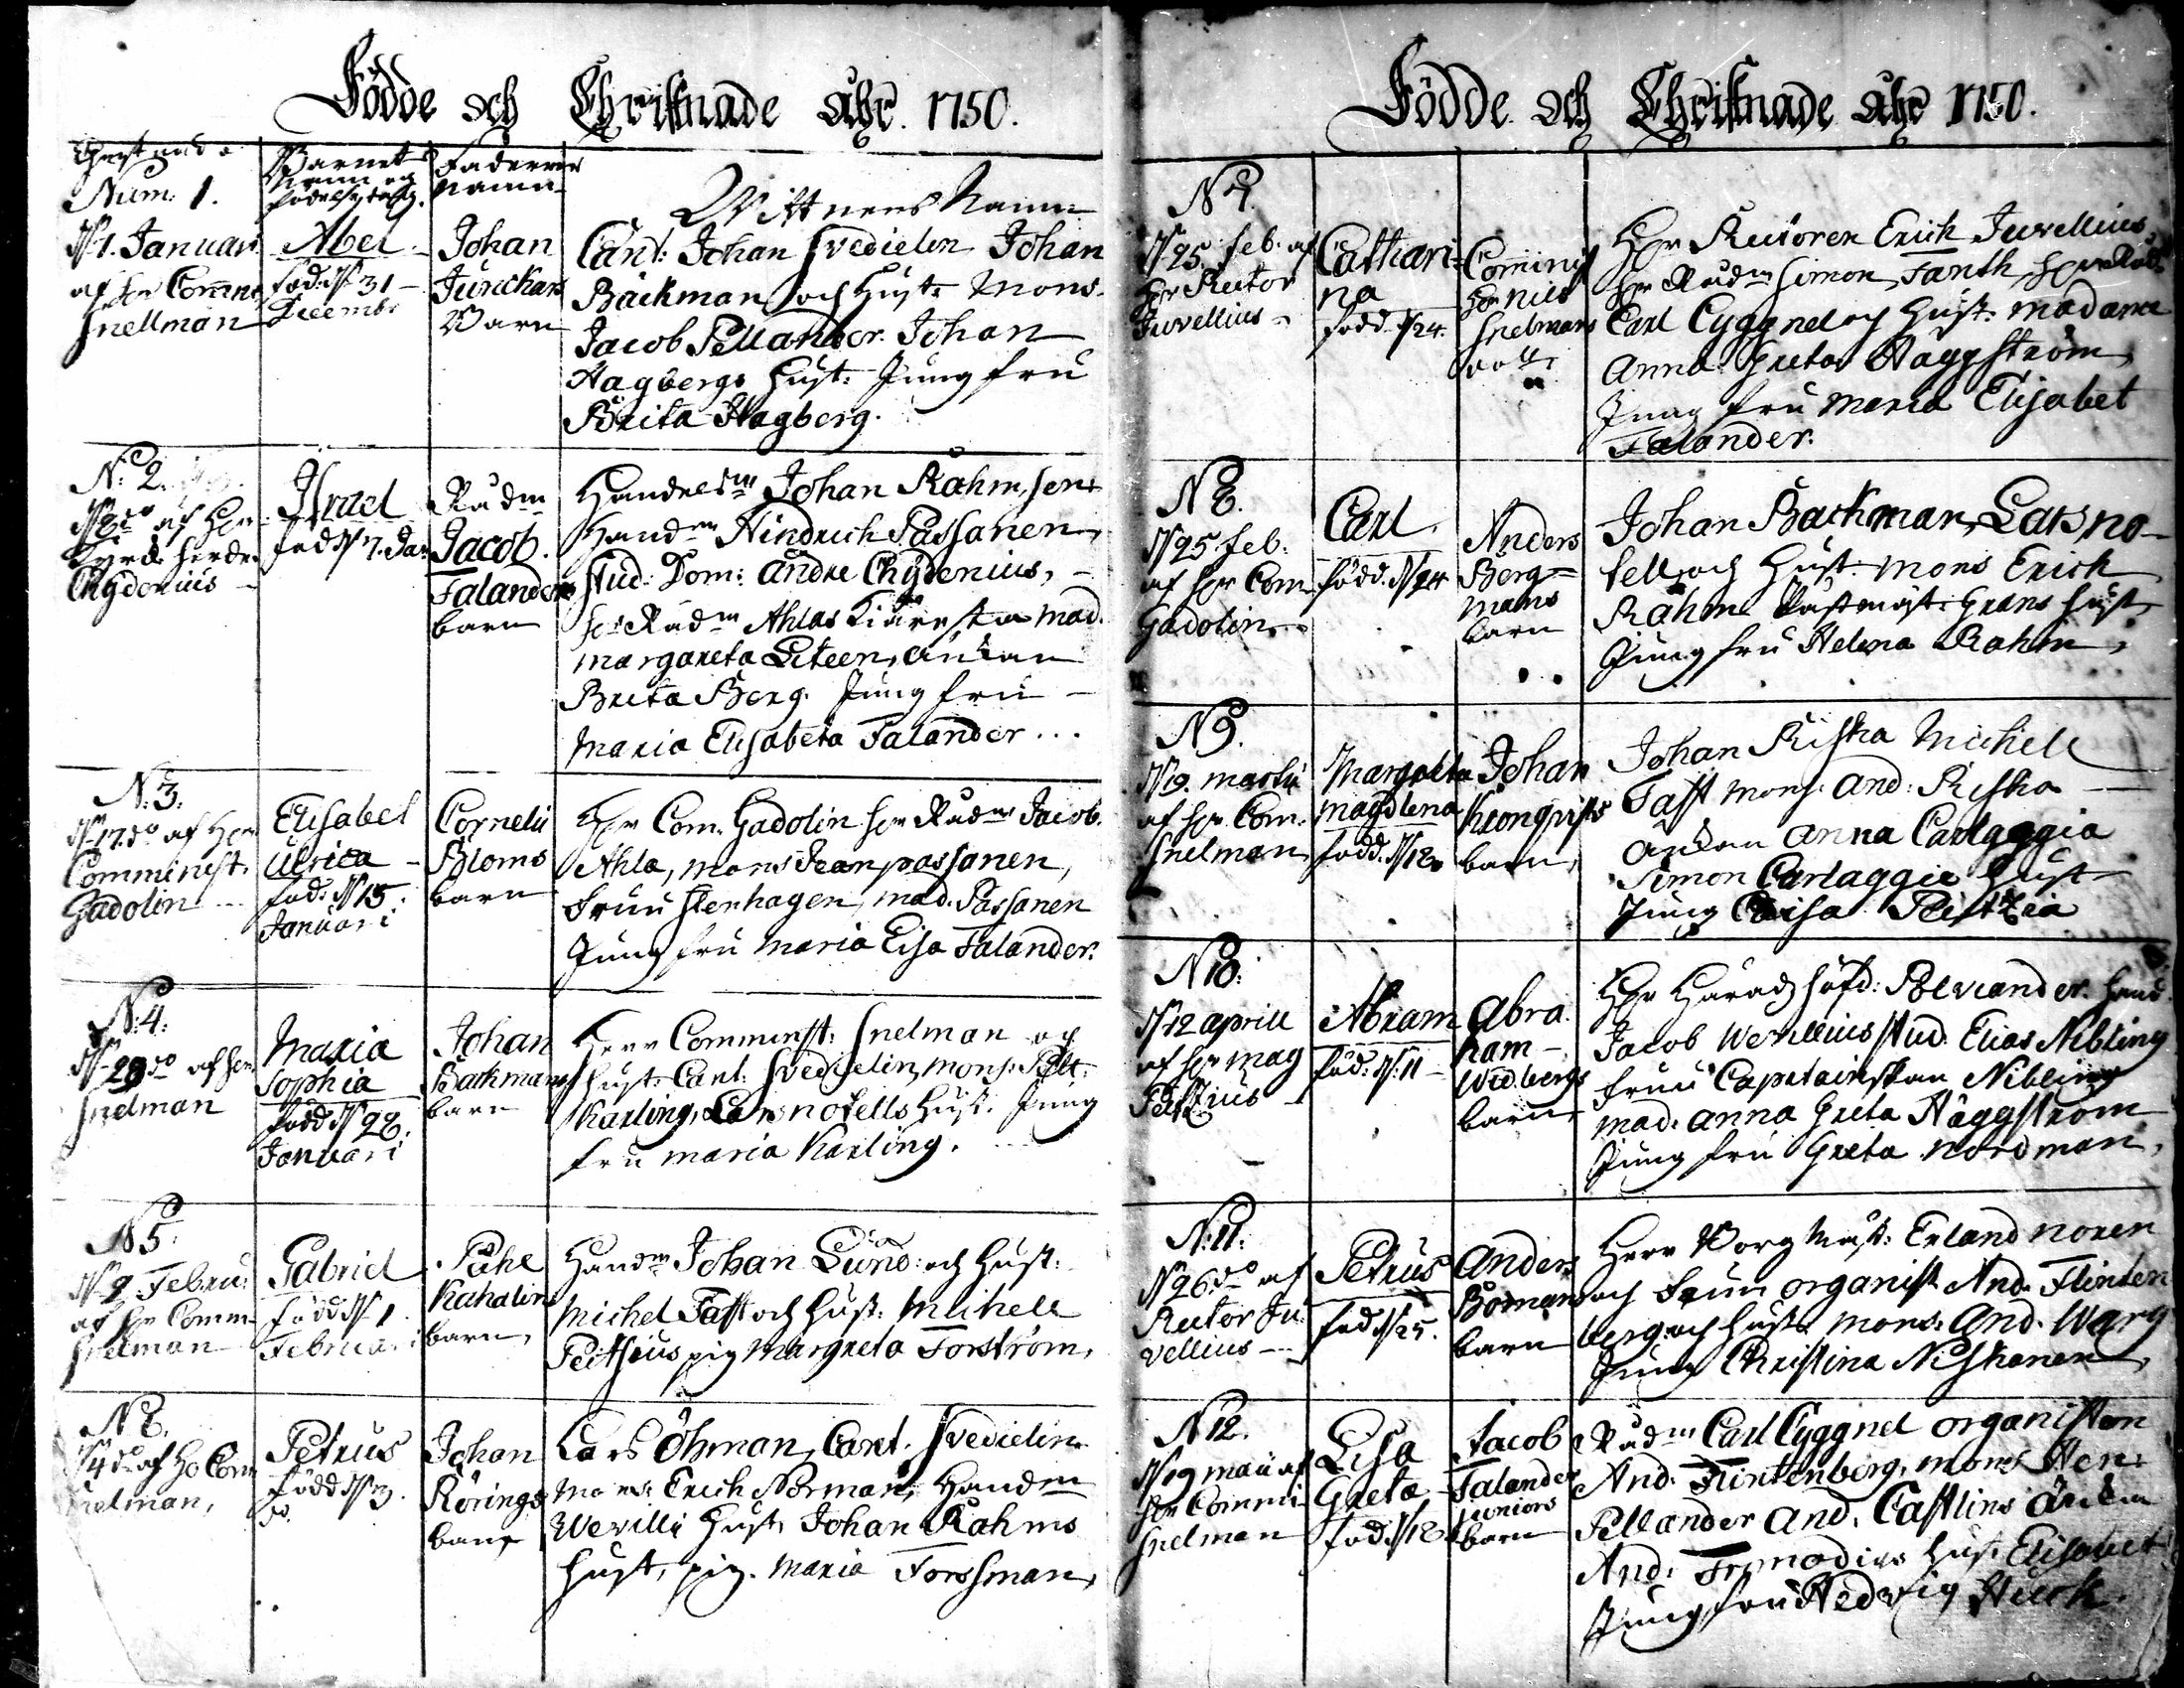 Födde och Christnade Åhr 1750.
Christnade
Num: 1.
d 1. Januari
af hr Commr
Snellman
Barnets
Namn og
födelsedag.
Abel
föd: d 31
Decembr
Faderns
namn
Johan
Jürickars
Barn
Wittnens Namn
Cant: Johan Svedielin Johan
Bäckman och Hust: Mons.
Jacob Pellander. Johan
Hagbergs Hust: Jungfru
Brita Hagberg.
N: 2.
d 8do af Hr
Kyrckoherde
Chydenius
Israel
föd d 7. Jan
Rådm
Jacob
Falanders
barn
Handelsm Johan Rahm, sen:
Handm Hindrich Passanen,
Stud: Dom: Andre Chydenius,
hr Rådm Ahlas Kiäresta mad.
margareta Liteen, änkan
Brita Berg. Jungfru
Maria Elisabeta Falander...
N: 3:
d 17do af Hr
Comminist.
Gadolin
Elisabet
Ulrica
föd: d 15
Januari
Cornelii
Bloms
barn
Hr Com. Gadolin hr Rådm Jacob.
Ahla, mons Jean passanen,
Fruu Stenhagen, mad. Passanen
Jungfru Maria Lisa Falander.
N: 4:
d 29do af hr
Snelman
Maria
Sophia
född d 28.
Januari
Johan
Backmans
barn
Herr Comminst: Snelman och
hust: Cant: Svedielin, mons: Pelt:
Karling, Lars notells Hust. Jung
fru maria Karling.
N 5:
d 2 Febru:
af hr Comm.
Snelman
Gabriel
född d 1
Februari
Påhl
Kahalin
barn,
Handm Johan Lund: och Hust:
Michel Fast och Hust: Mikell
Peitsius pig Margreta Forström,
N 6.
d 4 do af Hr Com
Snelman,
Petrus
född d 3.
do.
Johan
Rörings
barn
Lars Öhman, Cant. Svedielin
Mons: Erich Norman, Handm
Werilli Hust, Johan Rahms
hust, pig. Maria Forssman,
Födde och Christnade Åhr 1750.
N 7.
d 25. feb. af
hr Rector
Juvellius
Cathari=
na
född d 24.
Cominis
Hr Nils
Snelmans
dotter
Hr Rectoren Erich Juvellius,
hr Rådm Simon Fanth, hr Rådm
Carl Cyggnel och Hust: madame
Anna Greta Häggström,
Jungfru Maria Elisabet
Falander.
N 8.
d 25 feb.
af hr Com
Gadolin
Carl
född. d 24
Anders
Berg=
mans
barn
Johan Backman, Lars no-
tell, och Hust: mons Erich
Rahm Hust
Jungfru Helena Rahm,
N 9.
d 19. martii
af hr Com.
Snelman
Margreta
magdlena
född. d 18
Johan
Krongvists
barn,
Johan Riska Michell
Fast mons: And: Riska
Änkan Anna Carlaggia
Simon Carlaggie Hust
Jung Caisa Peitzia
N 10:
d 12 aprill
af hr mag
Abram
föd: d: 11
Abra
ham
Widbergs
barn,
Hr Häradzhöfd: Polviander. Hand
Jacob Werillius Stud. Elias Nibling
Fruu Capetainskan Nibling
mad. anna Greta Häggström
Jungfru Greta Nordman,
N: 11:
d 26do af
Rector Ju=
vellius
Petrus
föd d 25.
Anders
Bomans
barn
Herr Borgmäst: Erland noren
och Fruu organist And. Flinten
berg och hust: mons. And. Warg
Jung Christina Niskanen,
N 12.
d 19 maii af
hr Commi
Snelman
Lisa
Greta
föd: d 18
Jacob
Falander
juniors
barn
Rådm Carl Cyggnel organisten
And: Flintenberg, mons Hen:
Pellander And. Castlins Änkia
And: hust: Elisabet
Jungfru Hedvig Huck.